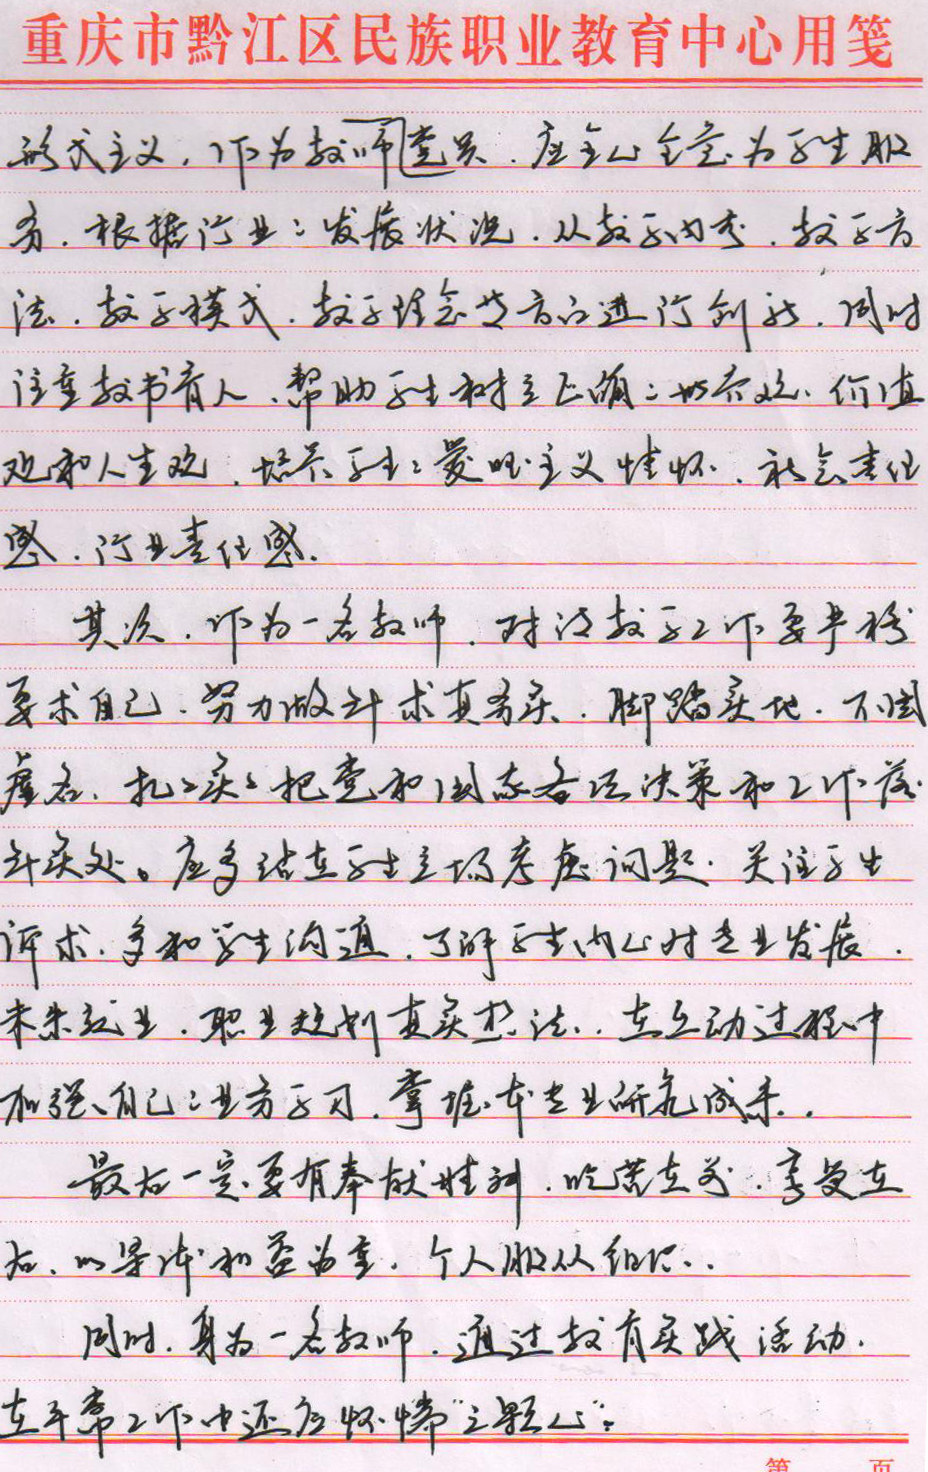 重庆市黔江区民族职业教育中心用笺
形式主义，作为教师党员，应全心全意为学生服
务，根据行业之发展状况，从教学内容，教学方
法，教学模式，教学理念等方面进行创新，同时
注重教书育人，帮助学生树立正确之世界观、价值
观和人生观，培养学生之爱国主义情怀，社会责任
感，行业责任感。
其次，作为一名教师，对待教学工作要严格
要求自己，努力做到求真务实，脚踏实地，不图
虚名，扎扎实实把党和国家各项决策和工作落
到实处。应多站在学生立场考虑问题，关注学生
诉求，多和学生沟通，了解学生内心对专业发展，
未来就业，职业规划真实想法，在互动过程中
加强自己之业务学习，掌握本专业研究成果。
最后一定要有奉献精神，吃苦在前，享受在
后，以集体利益为重，个人服从组织。
同时，身为一名教师，通过教育实践活动，
在平常工作中还应怀惴"三颗心"：
第 页